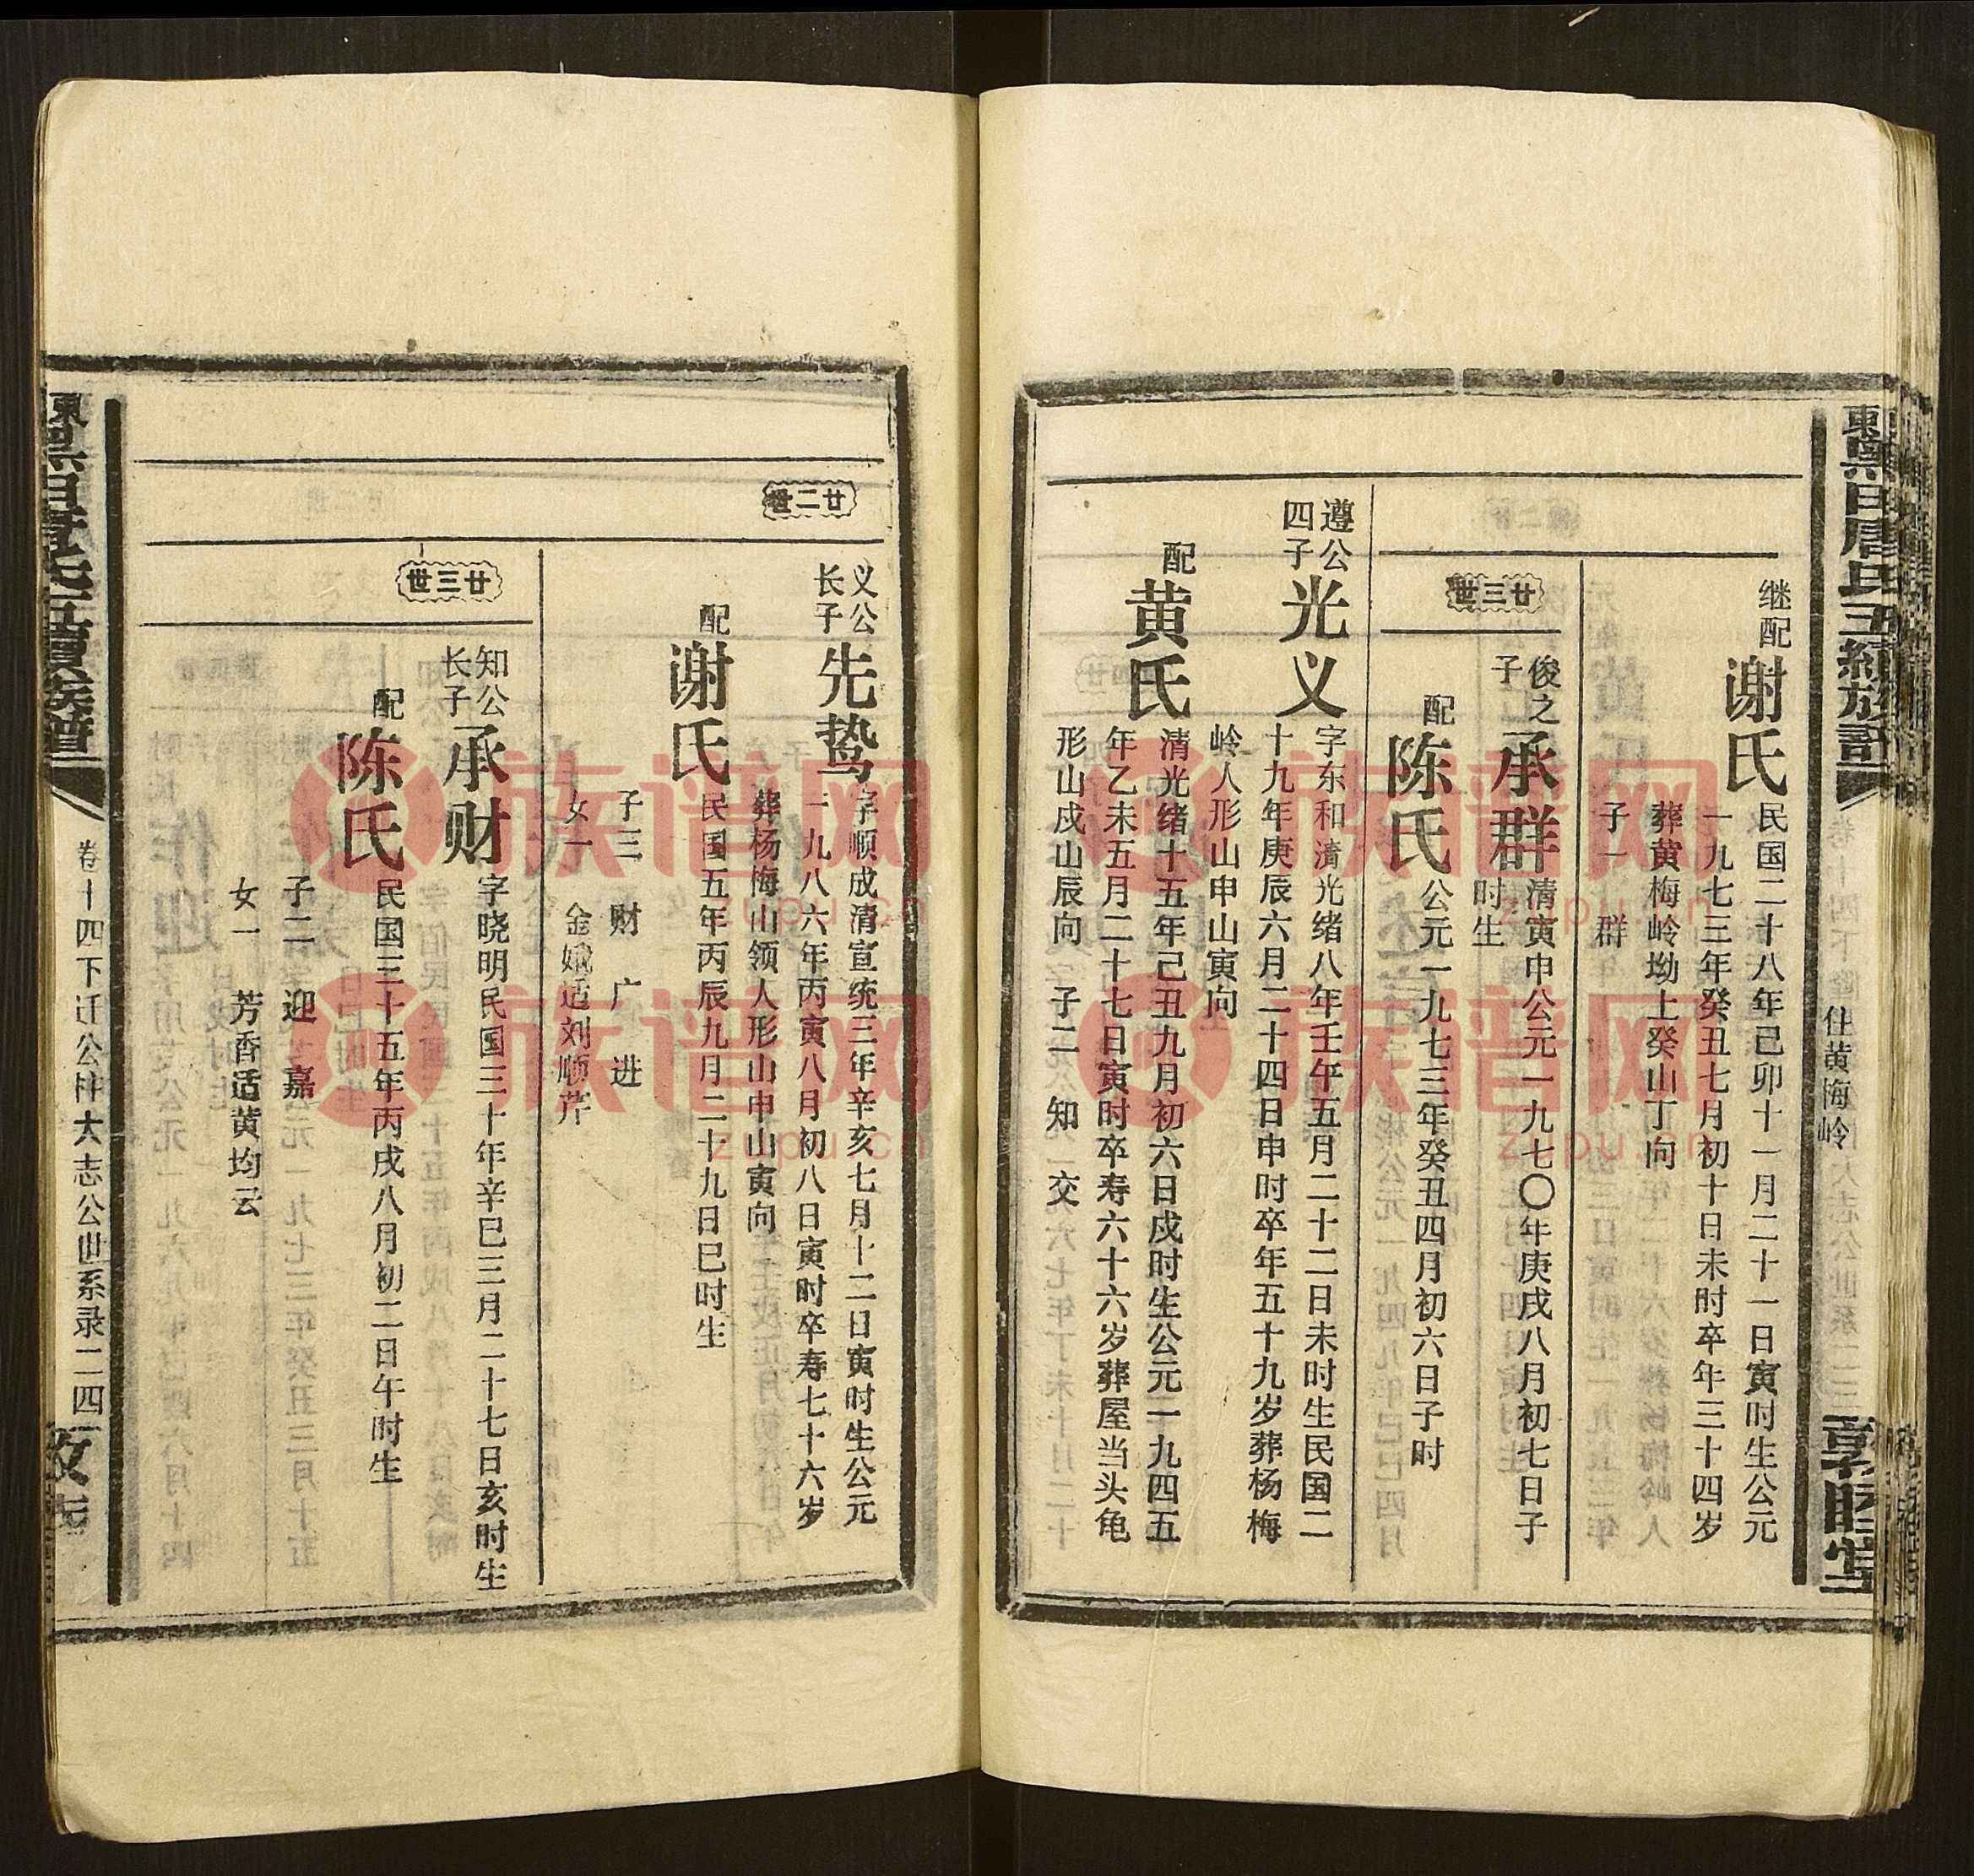 住黄梅岭
继配
谢氏
民国二十八年己卯十一月二十一日寅时生公元
一九七三年癸丑七月初十日未时卒年三十四岁
葬黄梅岭坳上癸山丁向
子一 群
廿三世
俊之子
承群
清寅申公元一九七〇年庚戌八月初七日子
时生
配
陈氏
公元一九七三年癸丑四月初六日子时
遵公四子
光义
字东和清光绪八年壬午五月二十二日未时生民国二
十九年庚辰六月二十四日申时卒年五十九岁葬杨梅
岭人形山申山寅向
配
黄氏
清光绪十五年己丑九月初六日戍时生公元一九四五
年乙未五月二十七日寅时卒寿六十六岁葬屋当头龟
形山戍山辰向 子二 知 交
廿二世
义公长子
先鸷
字顺成清宣统三年辛亥七月十二日寅时生公元
一九八六年丙寅八月初八日寅时卒寿七十六岁
葬杨梅山领人形山申山寅向
配
谢氏
民国五年丙辰九月二十九日巳时生
子三 财 广 进
女一 金娥适刘顺芹
廿三世
知公长子
承财
字晓明民国三十年辛巳三月二十七日亥时生
配
陈氏
民国三十五年丙戌八月初二日午时生
子二 迎 嘉
女一 芳香适黄均云
卷十四下迁公柱大志公世系录二四
族谱网
zupu.cn